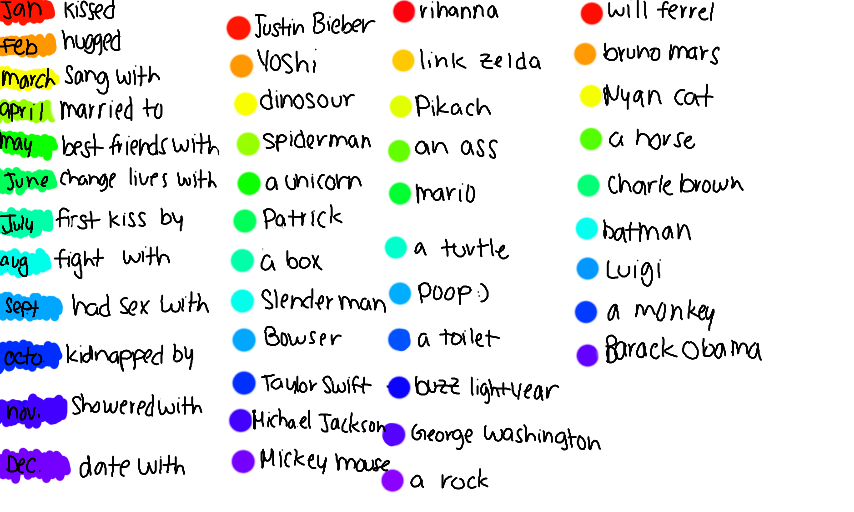 Jan kissed
Feb hugged
march Sang with
april married to
may best friends with
June change lives with
July first kiss by
aug fight with
Sept had sex with
octo kidnapped by
nov. Showered with
Dec date with
Justin Bieber
Yoshi
dinosour
spiderman
a unicorn
Patrick
a box
Slender man
Bowser
Taylor Swift
Michael Jackson
Mickey mouse
rihanna
link zelda
Pikach
an ass
mario
a turtle
Poop:)
a toilet
buzz lightyear
George washington
a rock
will ferrel
bruno mars
Nyan cat
a horse
Charle brown
batman
Luigi
a monkey
Barack Obama